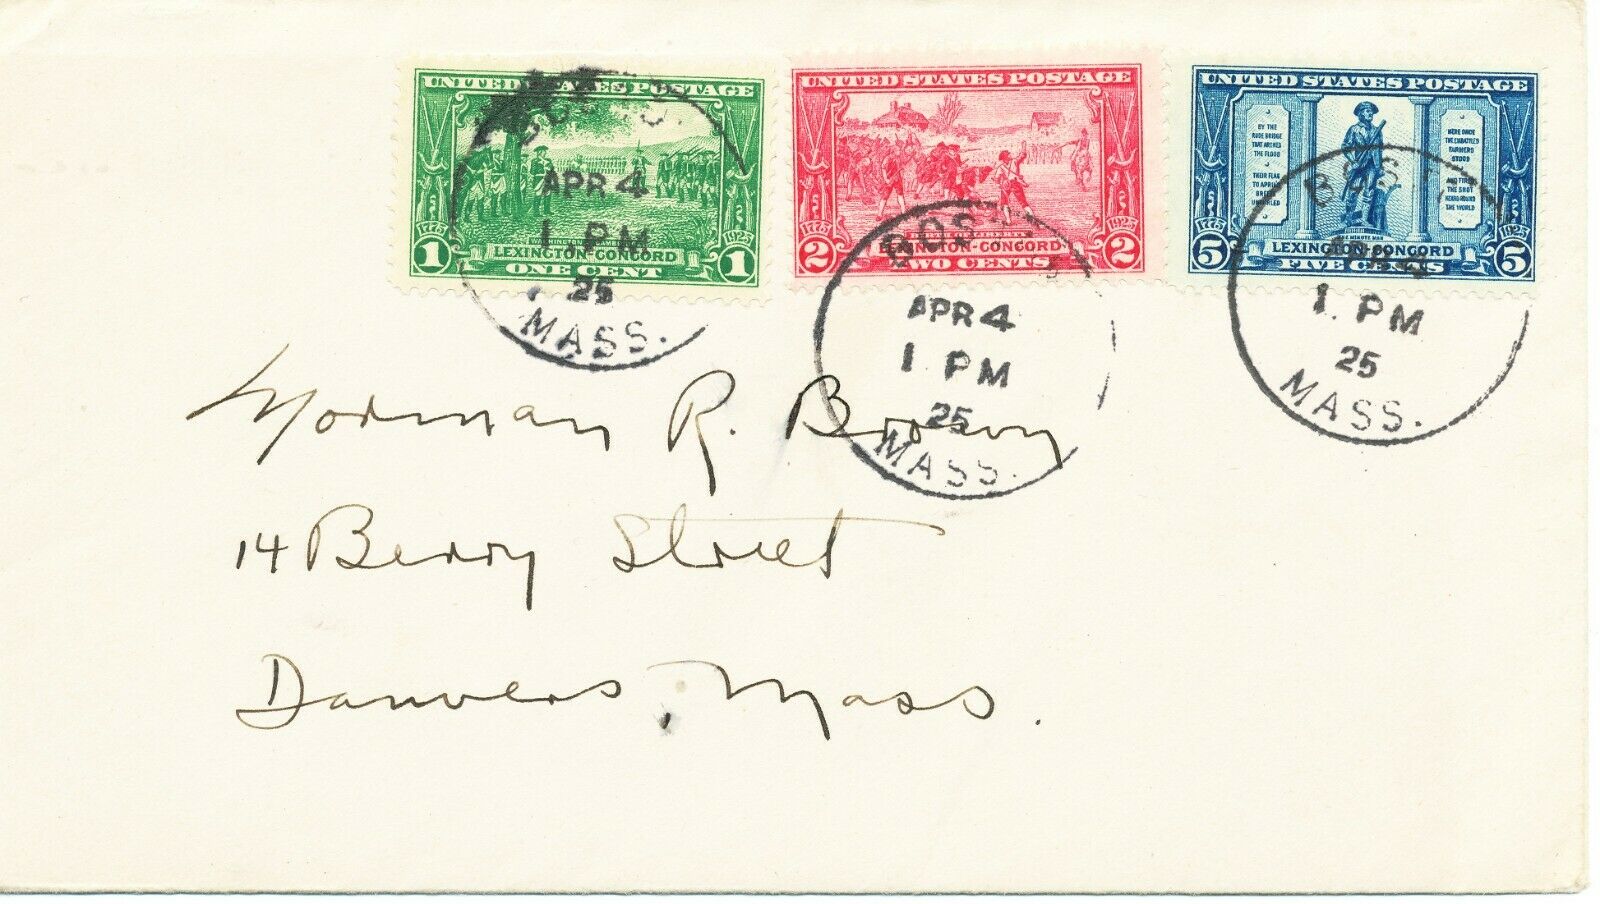 UNITED STATES POSTAGE
1775 1925
LEXINGTON-CONCORD
1 ONE CENT 1
BOSTON
APR 4
1 PM
25
MASS.
UNITED STATES POSTAGE
1775 1925
LEXINGTON-CONCORD
2 TWO CENTS 2
BOST
APR 4
1 PM
25
MASS.
UNITED STATES POSTAGE
BY THE
RUDE BRIDGE
THAT ARCHED
THE FLOOD
THEIR FLAG
TO APRIL'S
BREEZE
UNFURLED
HERE ONCE
THE EMBATTLED
FARMERS
STOOD
AND FIRED
THE SHOT
HEARD ROUND
THE WORLD
1775 1925
THE MINUTE MAN
LEXINGTON-CONCORD
5 FIVE CENTS 5
BOST
1 PM
25
MASS.
Norman R. Brown
14 Berry Street
Danvers, Mass.